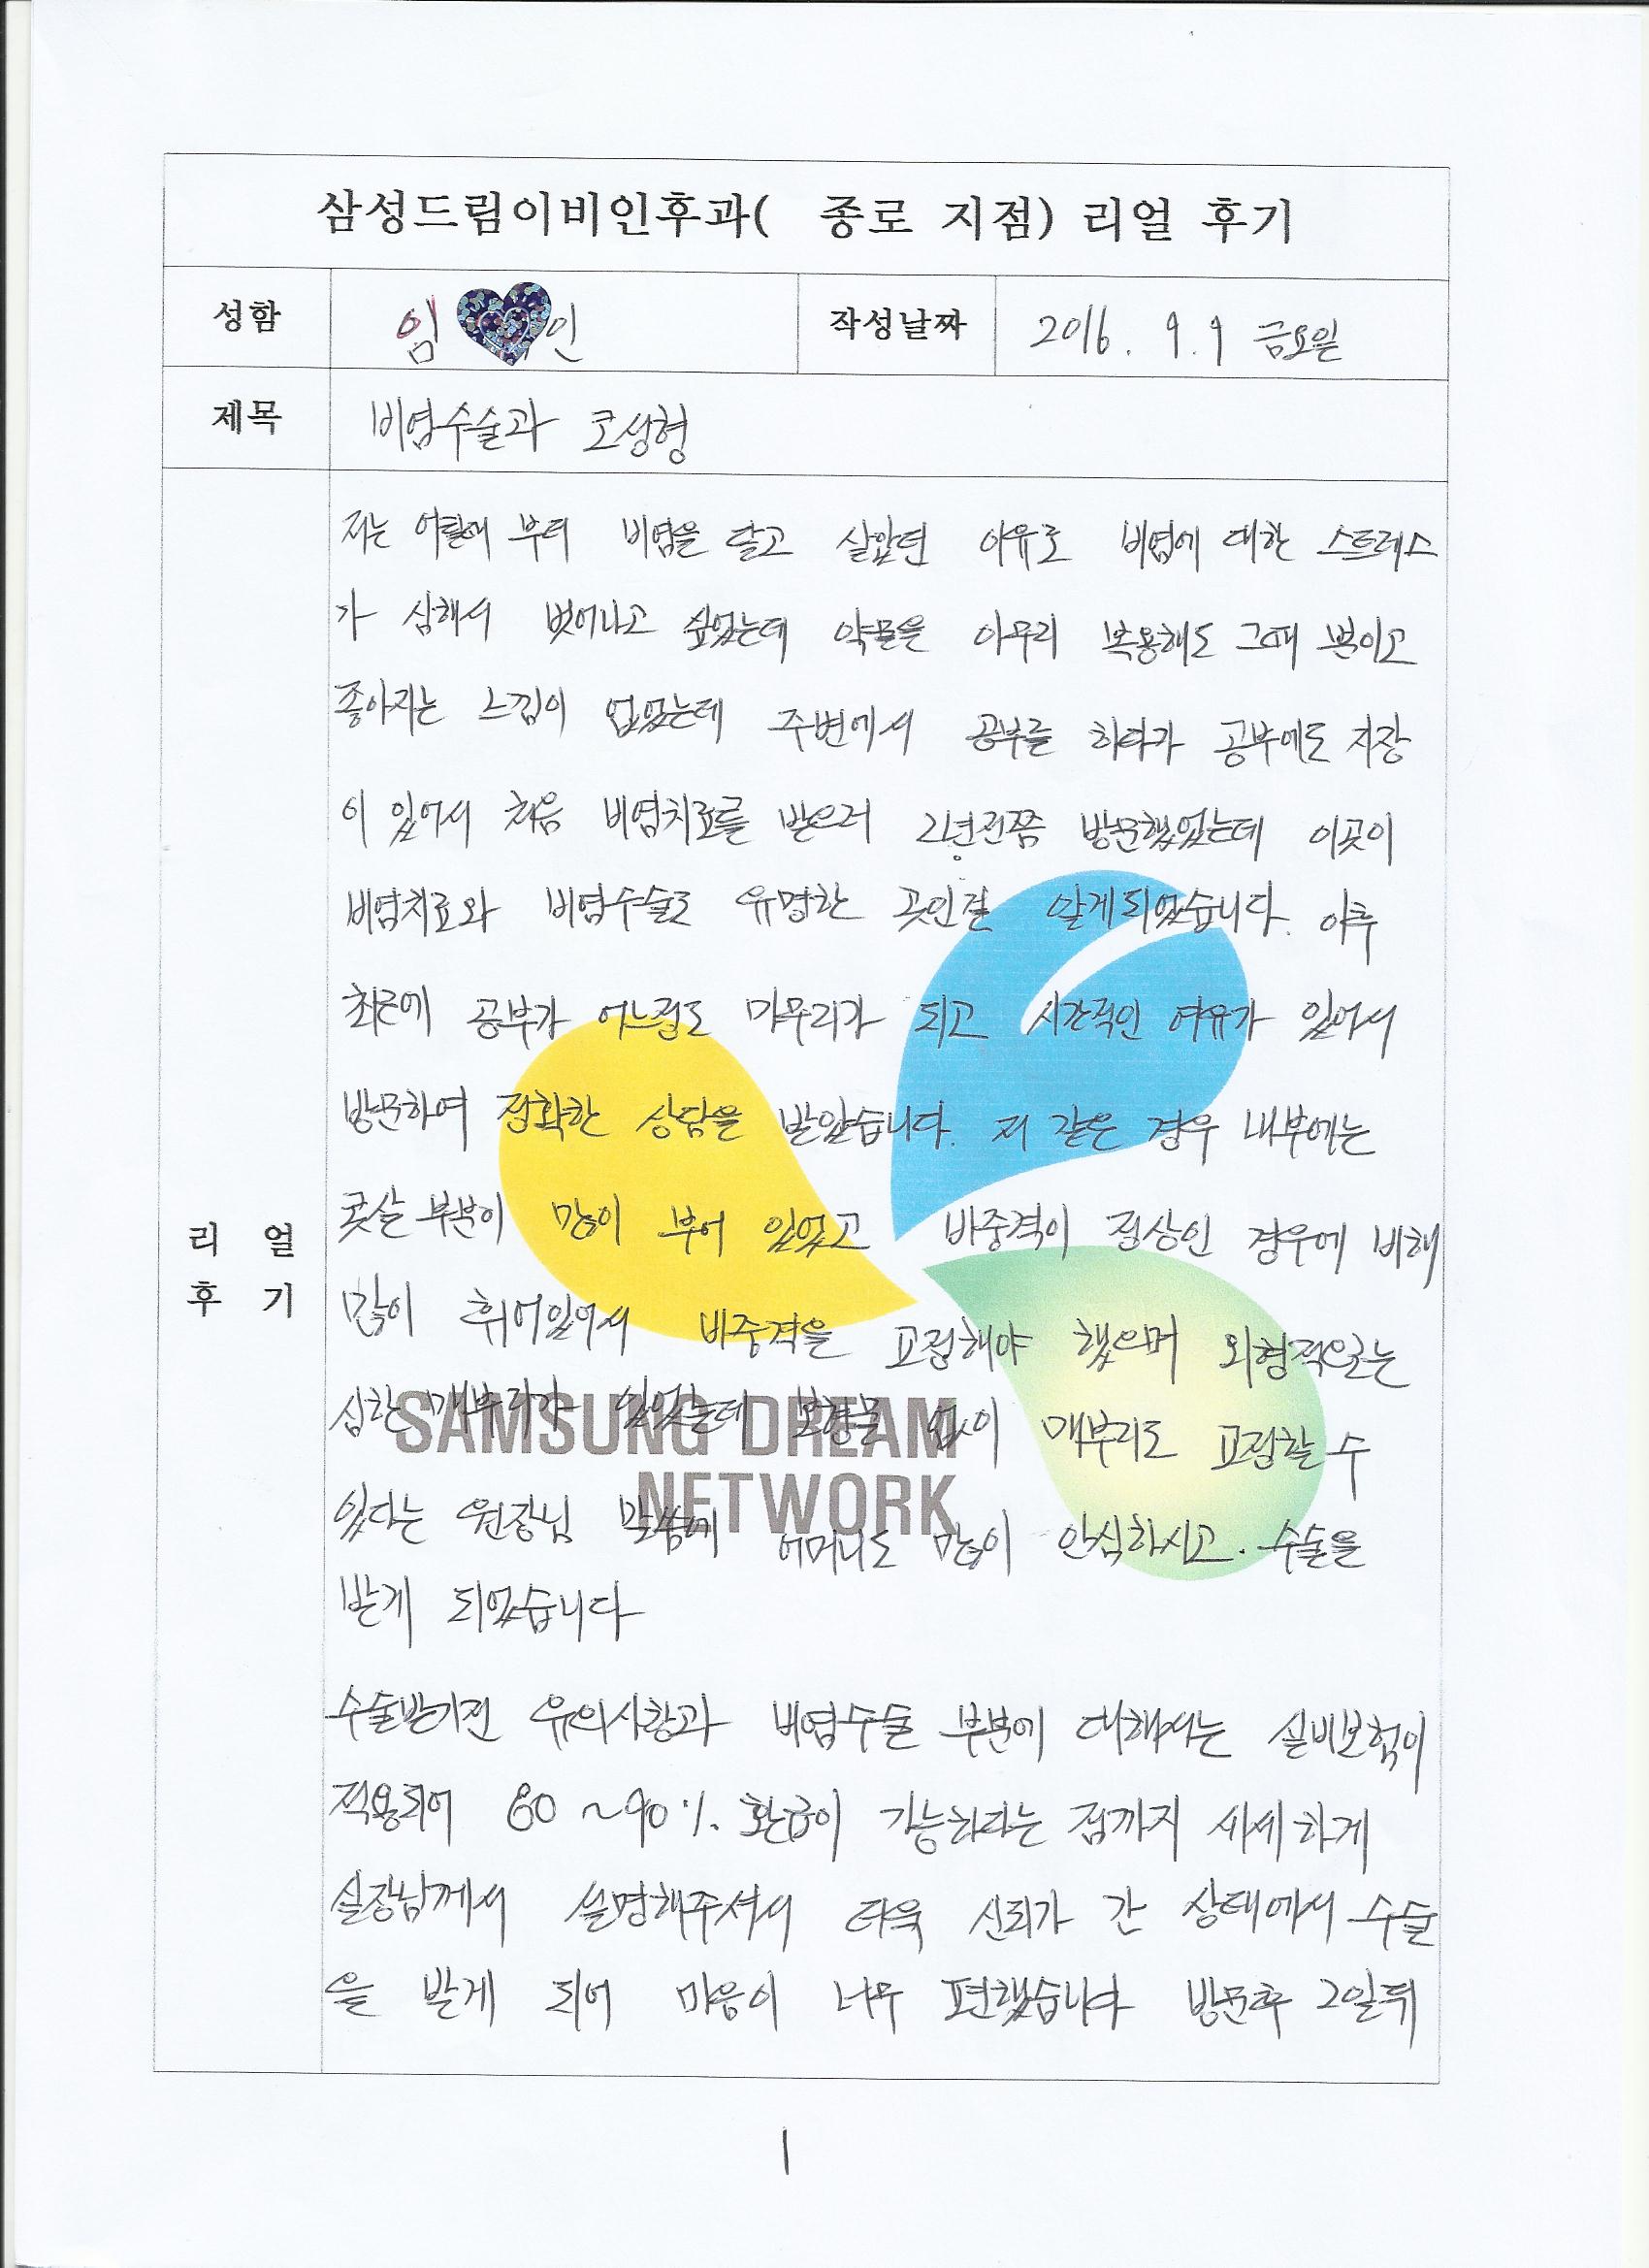 삼성드림이비인후과( 종로 지점) 리얼 후기
성함 임 인 작성날짜 2016. 9. 9 금요일
제목 비염수술과 코성형
저는 어릴때 부터 비염을 달고 살았던 이유로 비염에 대한 스트레스
가 심해서 벗어나고 싶었는데 약물을 아무리 복용해도 그때 뿐이고
좋아지는 느낌이 없었는데 주변에서 공부를 하다가 공부에도 지장
이 있어서 처음 비염치료를 받으러 2년전쯤 방문했었는데 이곳이
비염치료와 비염수술로 유명한 곳인걸 알게되었습니다. 이후
최근에 공부가 어느정도 마무리가 되고 시간적인 여유가 있어서
방문하여 정확한 상담을 받았습니다. 저 같은 경우 내부에는
콧살 부분이 많이 부어 있었고 비중격이 정상인 경우에 비해
많이 휘어있어서 비중격을 교정해야 했으며 외형적으로는
심한 매부리가 있었는데 보형물 없이 매부리도 교정할 수
있다는 원장님 말씀에 어머니도 많이 안심하시고. 수술을
받게 되었습니다
리 얼
후 기
SAMSUNG DREAM
NETWORK
수술받기전 유의사항과 비염수술 부분에 대해서는 실비보험이
적용되어 80 ~90%. 환급이 가능하다는 점까지 세세하게
실장님께서 설명해주셔서 더욱 신뢰가 간 상태에서 수술
을 받게 되어 마음이 너무 편했습니다 방문후 2일뒤
1